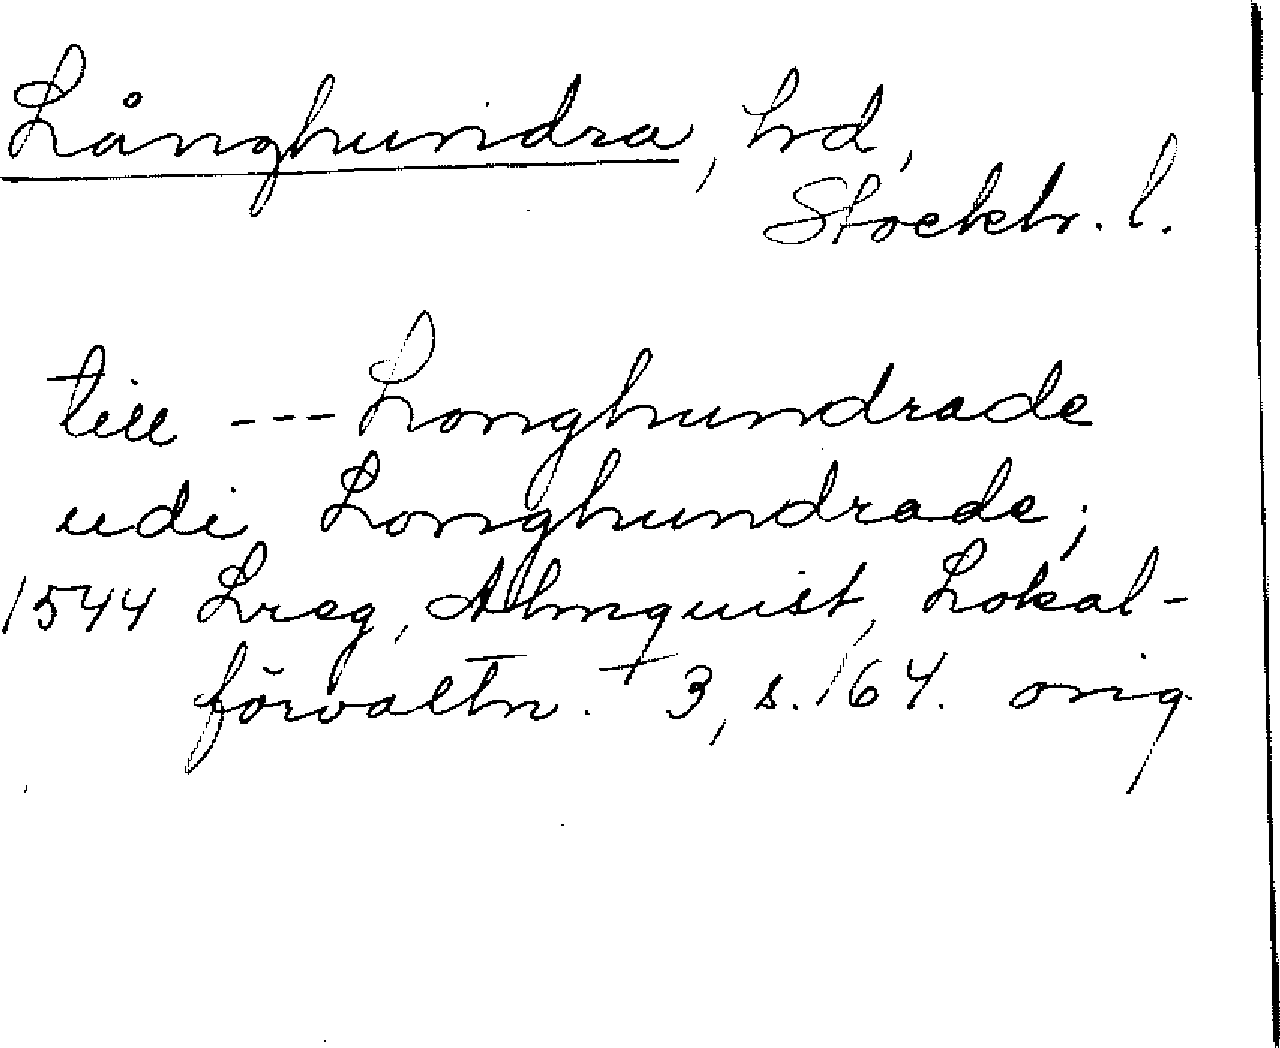 Långhundra, hd,
Stockh. l.
till --- Longhundrade
udi Longhundrade;
1544 Lreg, Almquist, Lokal-
förvaltn. + 3, s. 164. orig